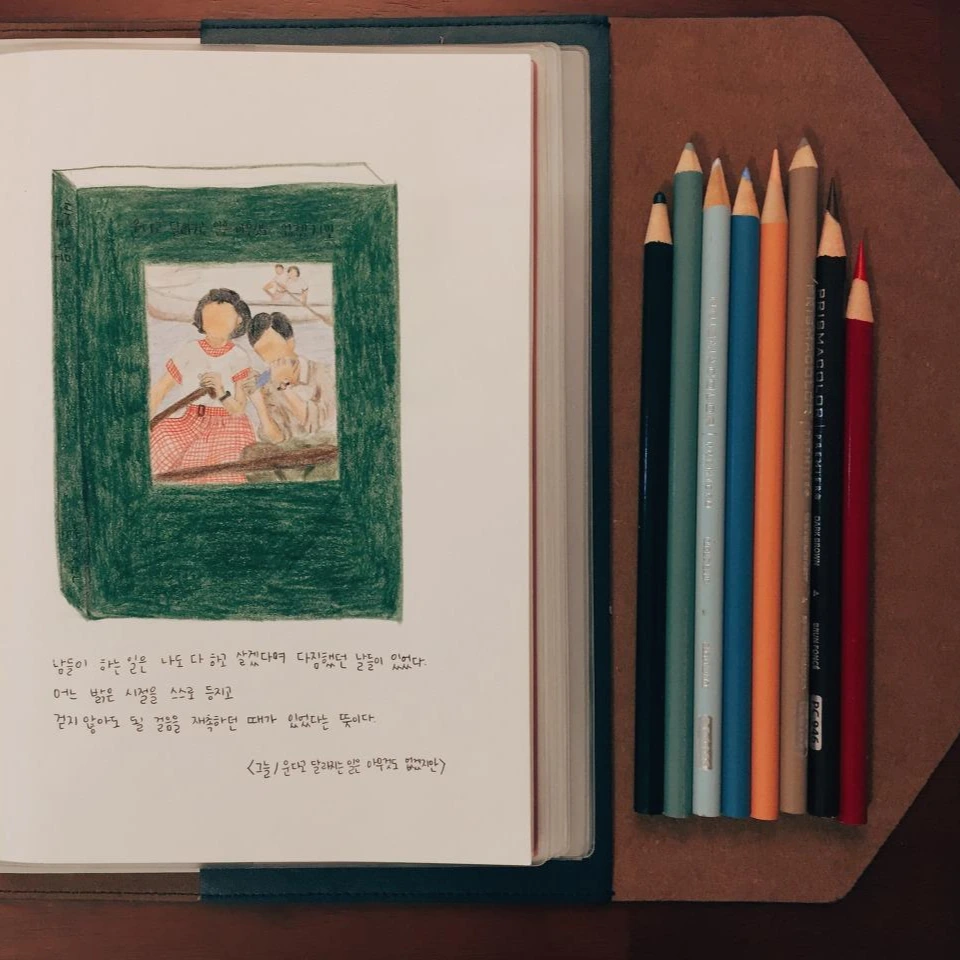 남들이 하는 일은 나도 다 하고 살겠다며 다짐했던 날들이 있었다.
어느 밝은 시절을 스스로 등지고
걷지 않아도 될 걸음을 재촉하던 때가 있었다는 뜻이다.
<그늘 / 운다고 달라지는 일은 아무것도 없겠지만>
PRISMACOLOR PREMIER DARK BROWN BRUN FONCÉ PC 946